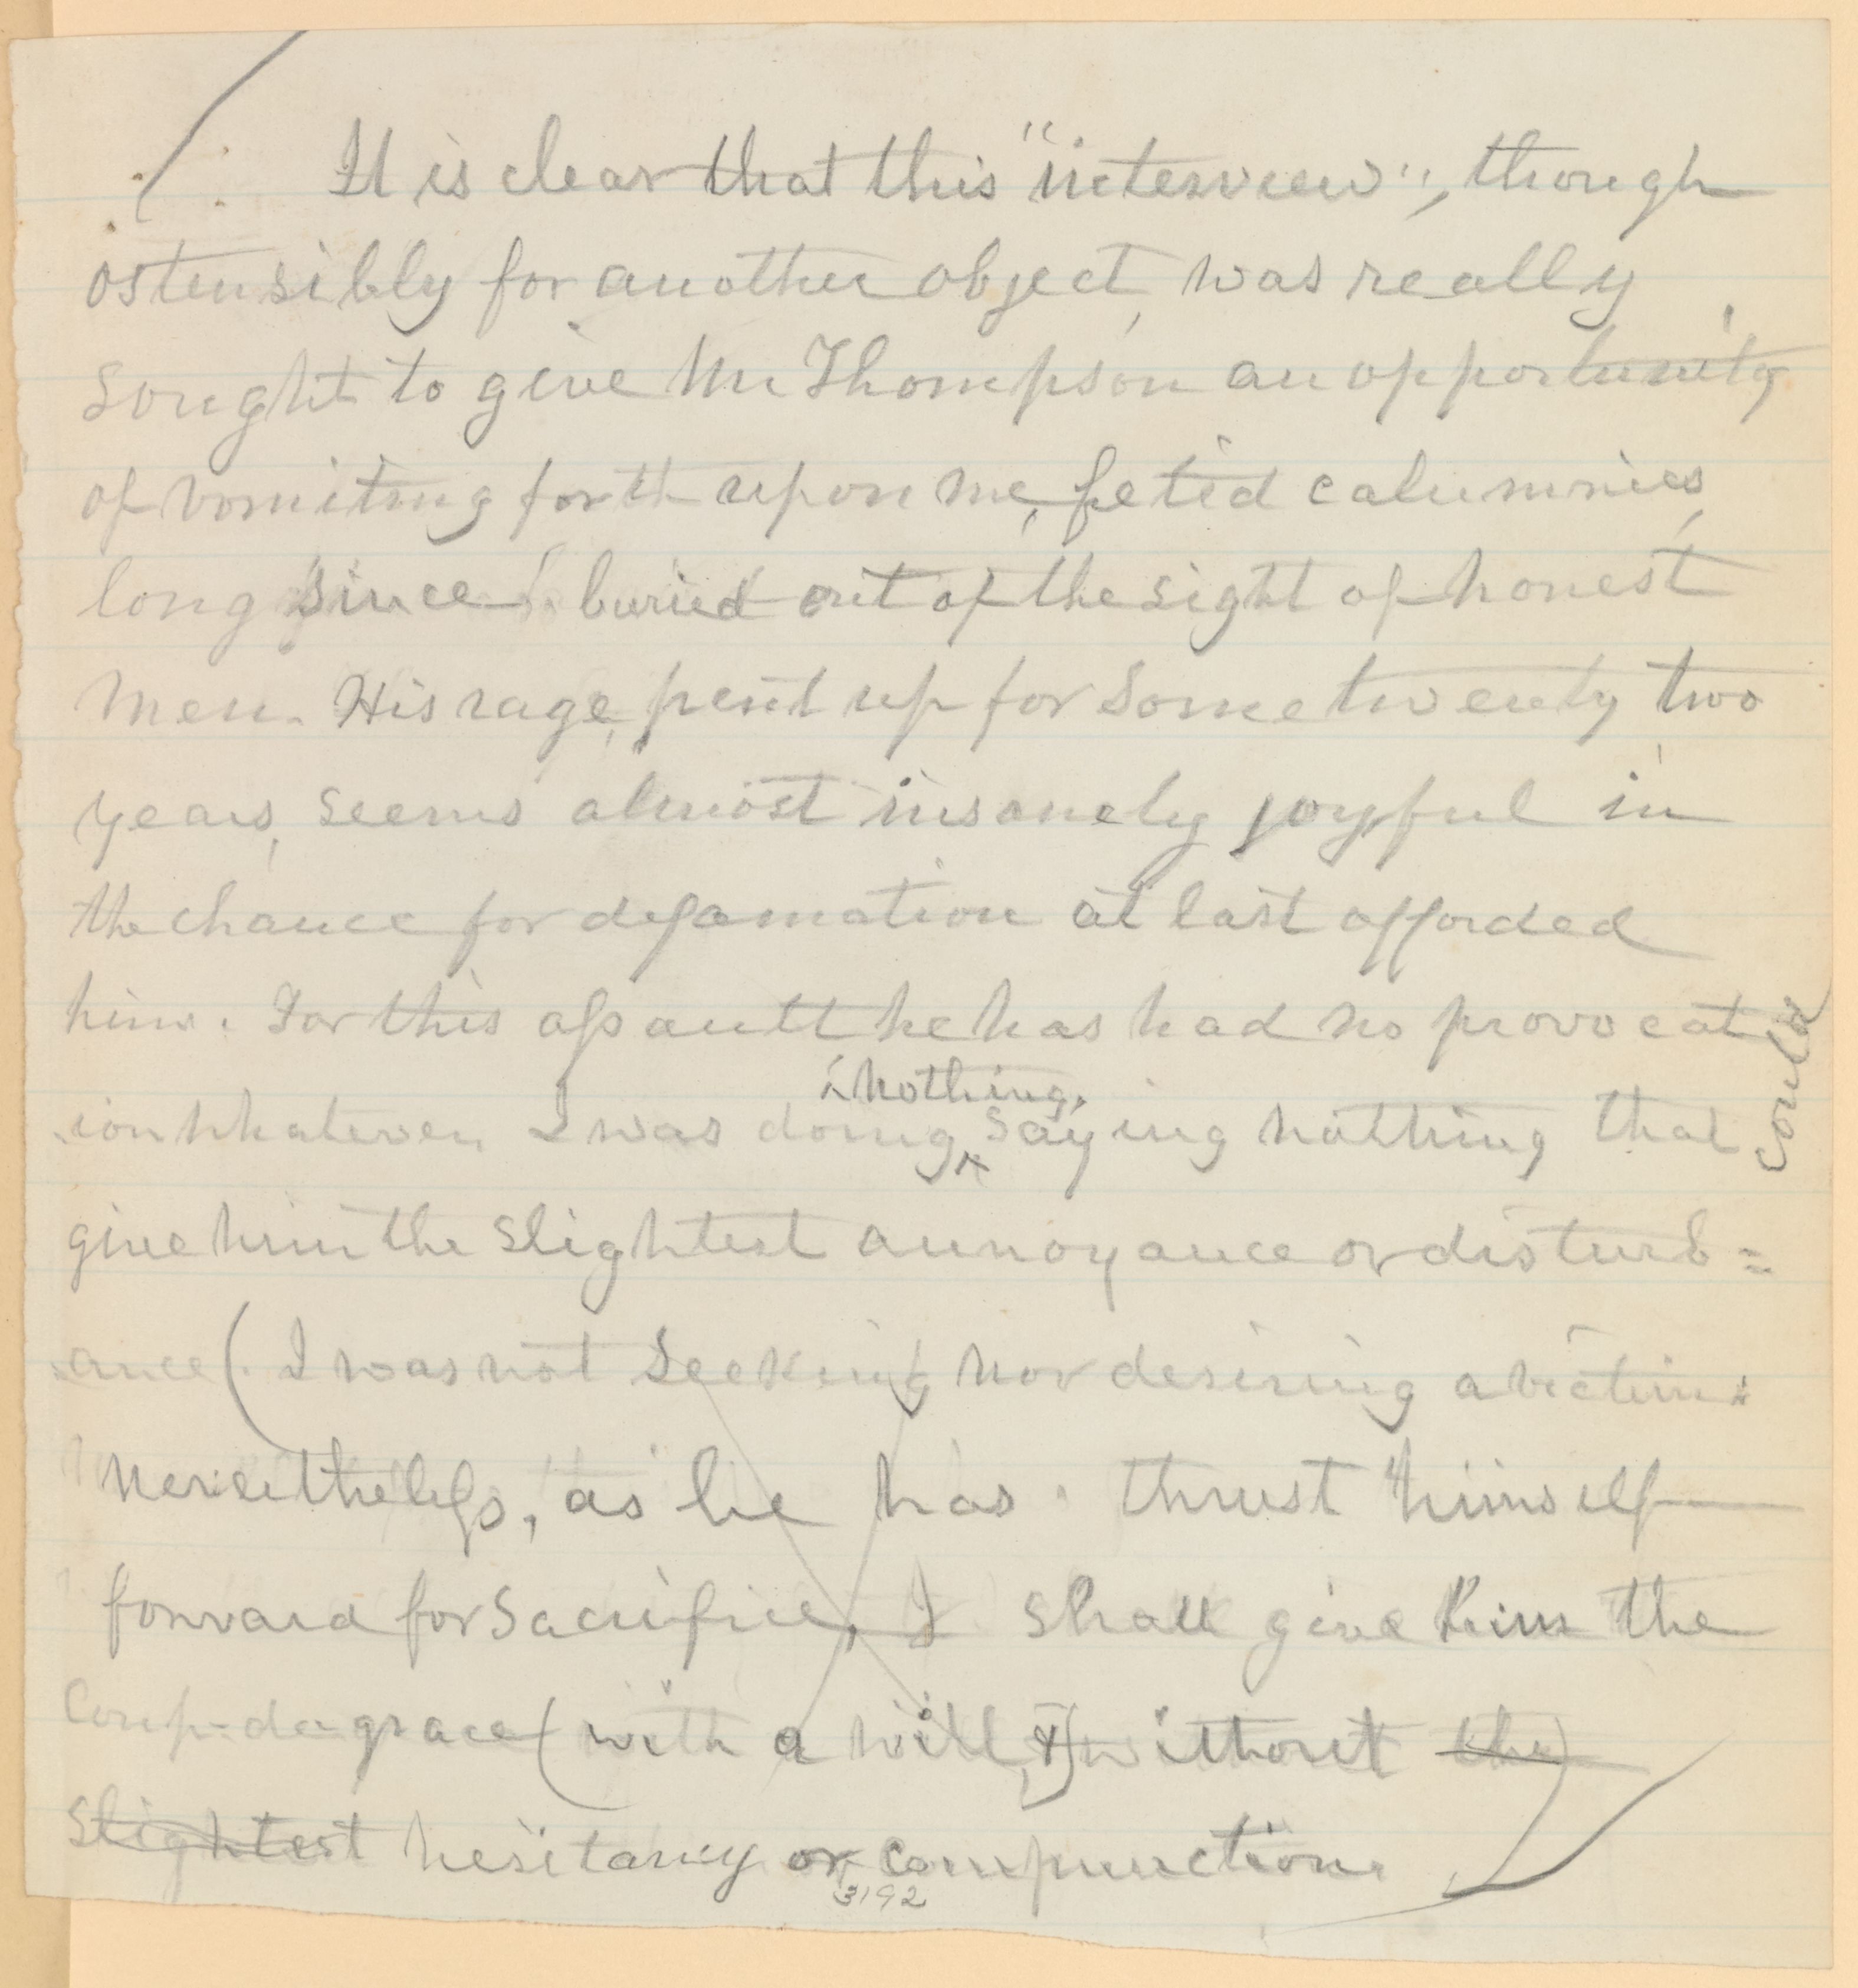 It is clear that this "interview", though
ostensibly for another object, was really
sought to give Mr Thompson an opportunity
of vomiting forth upon me, fetid calumnies,
long since buried out of the sight of honest
men. His rage, pent up for some twenty two
years, seems almost insanely joyful in
the chance for defamation at last afforded
him. For this assault he has had no provocat
ion whatever. I was doing nothing, saying nothing that could
give him the slightest annoyance or disturb=
ance (. I was not seeking nor desiring a victim:
Nevertheless, as he has thrust himself
forward for sacrifice, I shall give him the
Coup-de-grace (with a will, &) without the
slightest hesitancy or compunction.
3192